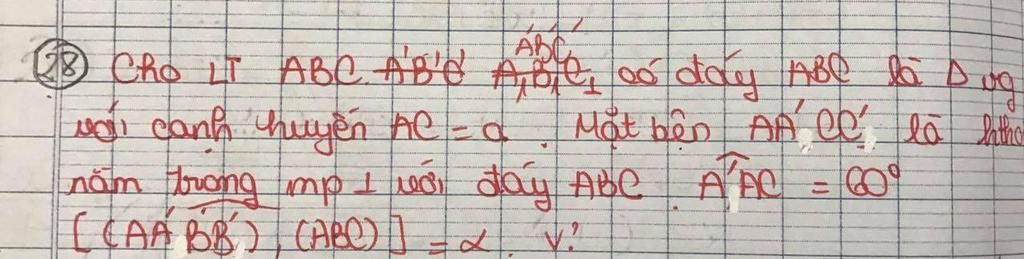 A'B'C'
28 CHO LT ABC.A'B'C' A₁B₁C₁ có đáy ABC là Δ vg
với cạnh huyền AC = a. Mặt bên AA'CC' là hthoi
nằm trong mp ⊥ với đáy ABC. A'AC = 60°
[(AA'BB'), (ABC)] = α. V?